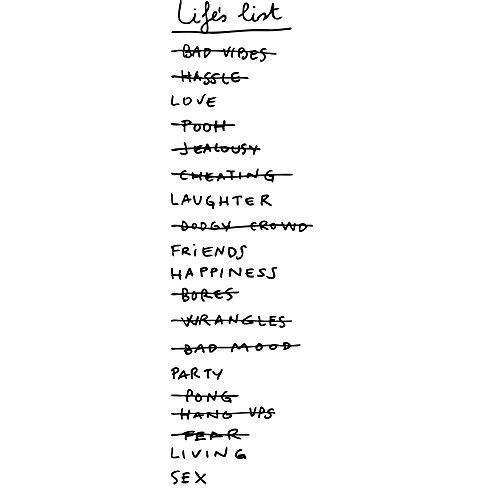 Life's list
BAD VIBES
HASSLE
LOVE
POOH
JEALOUSY
CHEATING
LAUGHTER
DODGY CROWD
FRiENDS
HAPPINESS
BORES
WRANGLES
BAD MOOD
PARTY
PONG
HANG UPS
FEAR
LIVING
SEX